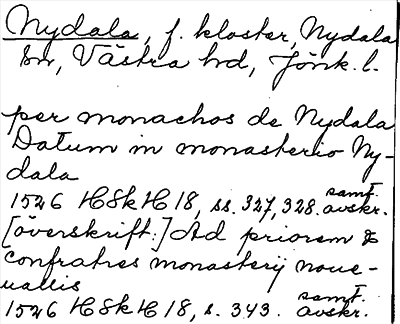 Nydala, f. kloster, Nydala
sn, Västra hd, Jönk. l.
per monachos de Nydala
Datum in monasterio Ny-
dala
1526 HSkH 18, ss. 327, 328. samt. avskr.
[överskrift:] Ad priorem &
confratres monasterij noue-
uallis
1526 HSkH 18, s. 343. samt. avskr.